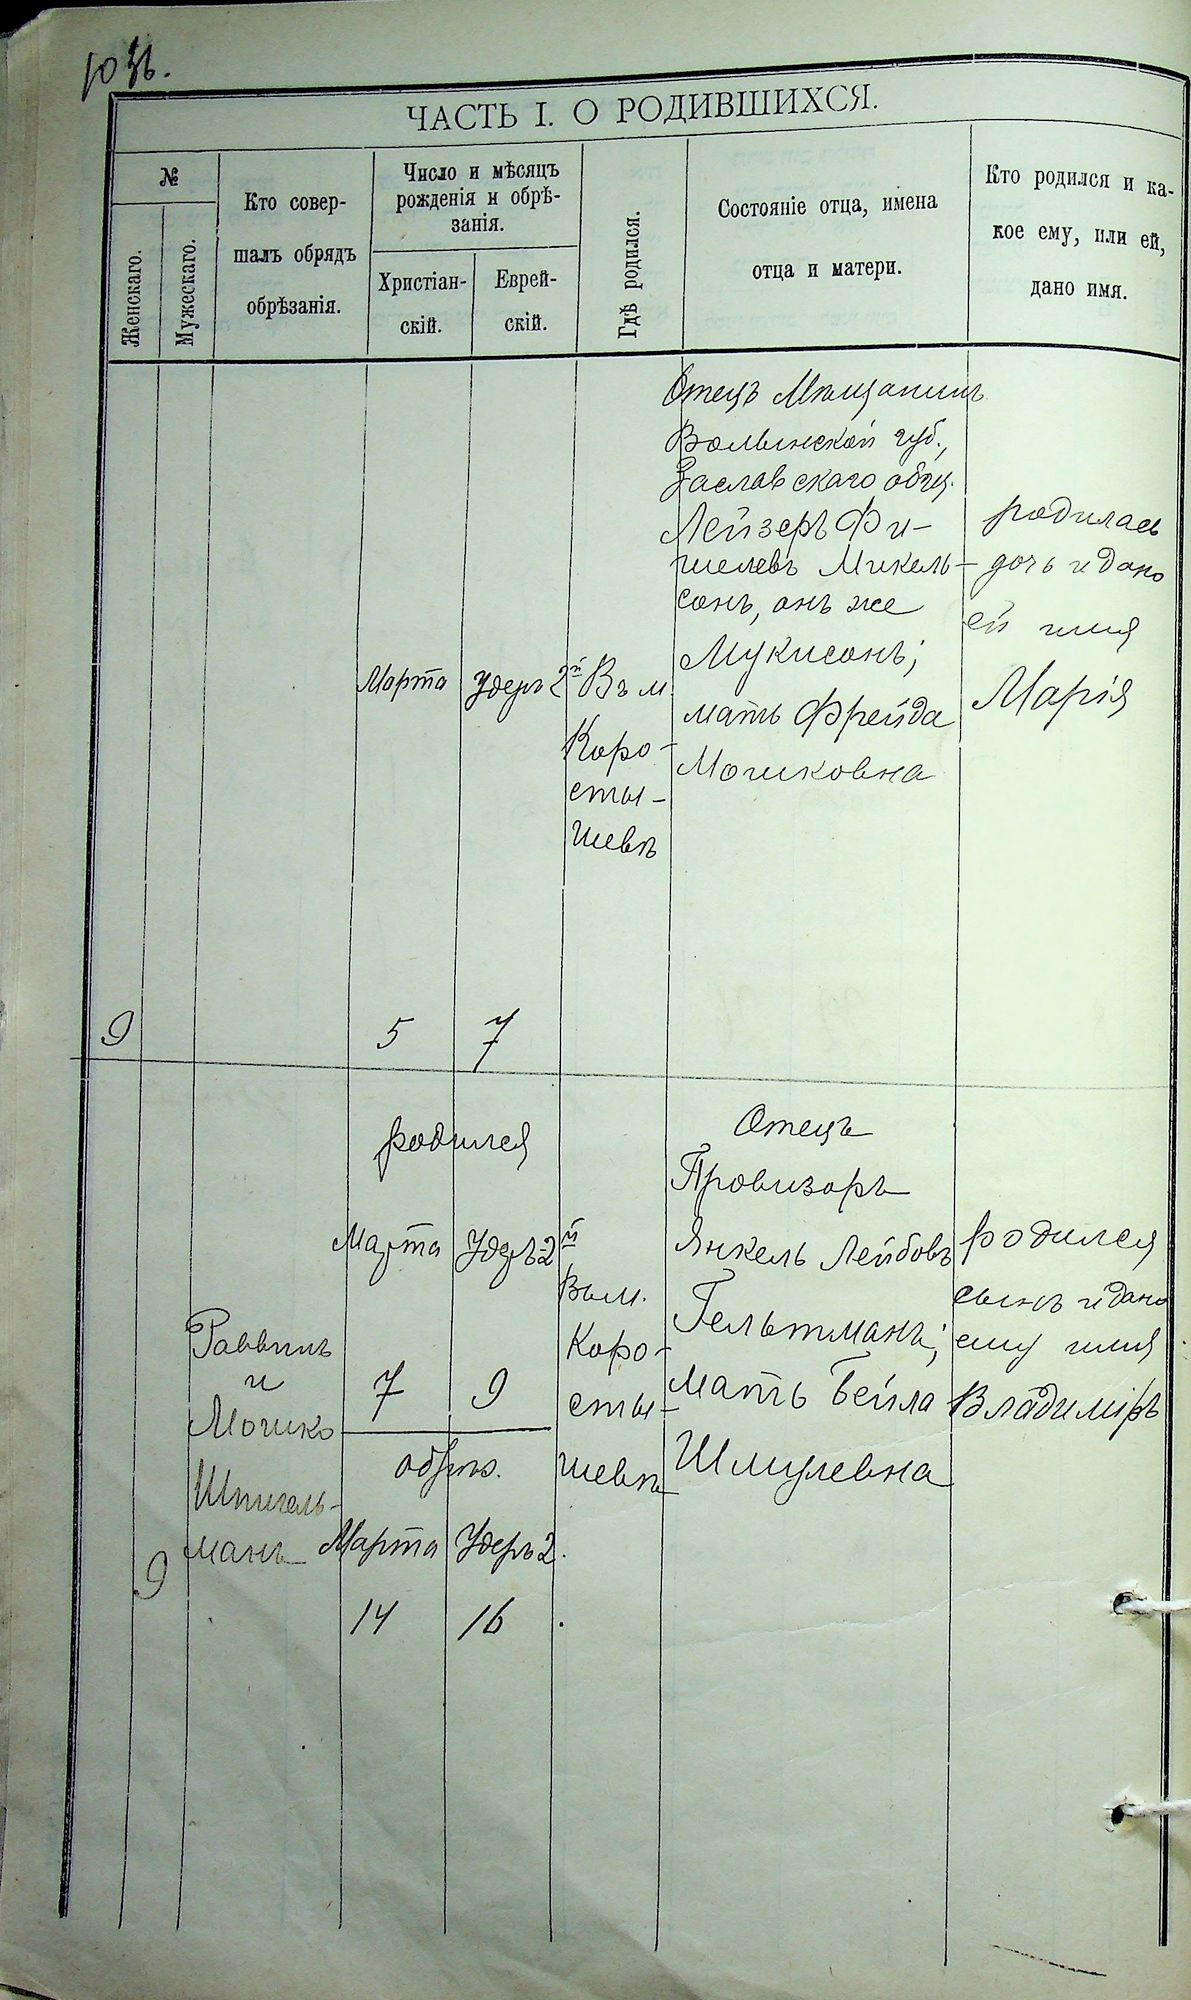 ЧАСТЬ I. О РОДИВШИХСЯ.
№
Женскаго.
Мужескаго.
Кто совер-
шалъ обрядъ
обрѣзанія.
Число и мѣсяцъ
рожденія и обрѣ-
занія.
Христіан-
скій.
Еврей-
скій.
Гдѣ родился.
Состояніе отца, имена
отца и матери.
Кто родился и ка-
кое ему, или ей,
дано имя.
9
Марта
5
Удеръ 2й
7
Въ м.
Коро-
сты-
шевѣ
Отецъ Мѣщанинъ
Волынской губ.,
Заславскаго общ.
Лейзеръ Фи-
шелевъ Микель-
сонъ, онъ же
Мукисонъ;
мать Фрейда
Мошковна
родилась
дочь и дано
ей имя
Марія
9
Раввинъ
и
Мошко
Шпигель-
манъ
родился
Марта
7
Удеръ 2й
9
обрѣз.
Марта
14
Удеръ 2.
16
Въ м.
Коро-
сты-
шевѣ
Отецъ
Провизоръ
Янкель Лейбовъ
Гельтманъ;
мать Бейла
Шмулевна
родился
сынъ и дано
ему имя
Владиміръ